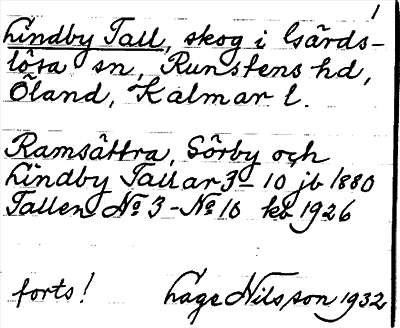 1
Lindby Tall, skog i Gärds-
lösa sn, Runstens hd,
Öland, Kalmar l.
Ramsättra, Sörby och
Lindby Tallar 3-10 jb 1880
Tallen No 3-No 10 kb 1926
forts! Lage Nilsson 1932